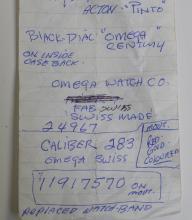 ACTON "PINTO"
BLACK-DIAL "OMEGA
CENTURY
ON INSIDE
CASE BACK.
OMEGA WATCH CO.
FAB SWISS
SWISS MADE
24967
CALIBER 283
OMEGA SWISS
MOVT.
RED
GOLD
COLOURED
11917570 ON
MOVT.
REPLACED WATCH-BAND